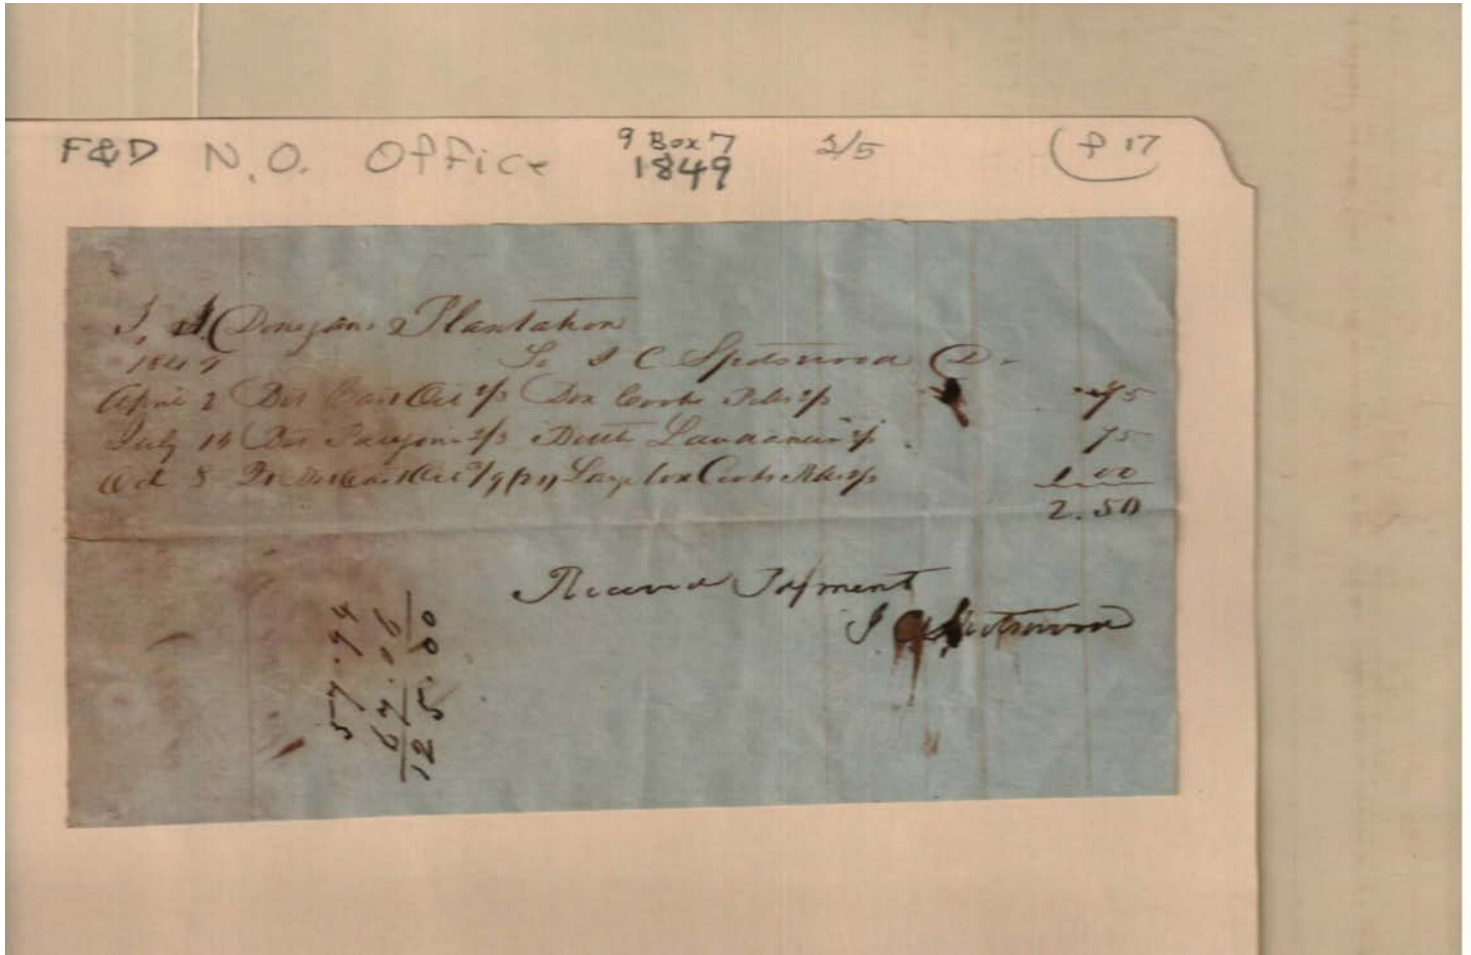 F&D N.O. Office 9 Box 7 1849 2/5 (f 17
J. J. Donegans Plantation
1849 To J C Spotswood Dr
April 2 Castor Oil 2/3 Box Cooks Pills 2/3 75
July 16 Paregoric 2/3 Laudanum 2/3 75
Oct 8 Castor Oil Large box Cooks Pills 1.00
2.50
Received Payment
J. C. Spotswood
57.94
67.06
125.00